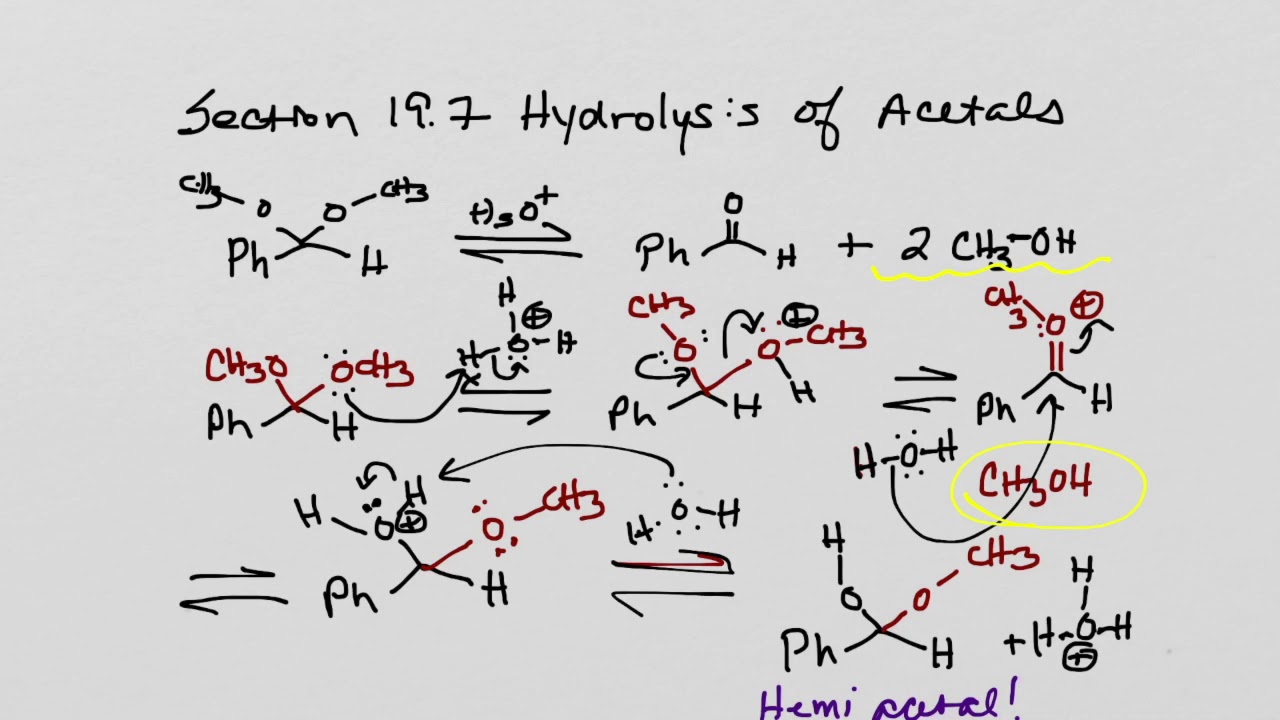 Section 19.7 Hydrolysis of Acetals
CH3 O O CH3 Ph H H3O+ O Ph H + 2 CH3-OH
CH3O OCH3 Ph H H H O H + CH3 O O CH3 + Ph H H CH3 O + Ph H
H O H CH3OH
H O H + O CH3 Ph H H O H
H O O CH3 Ph H + H O H H +
Hemi acetal!